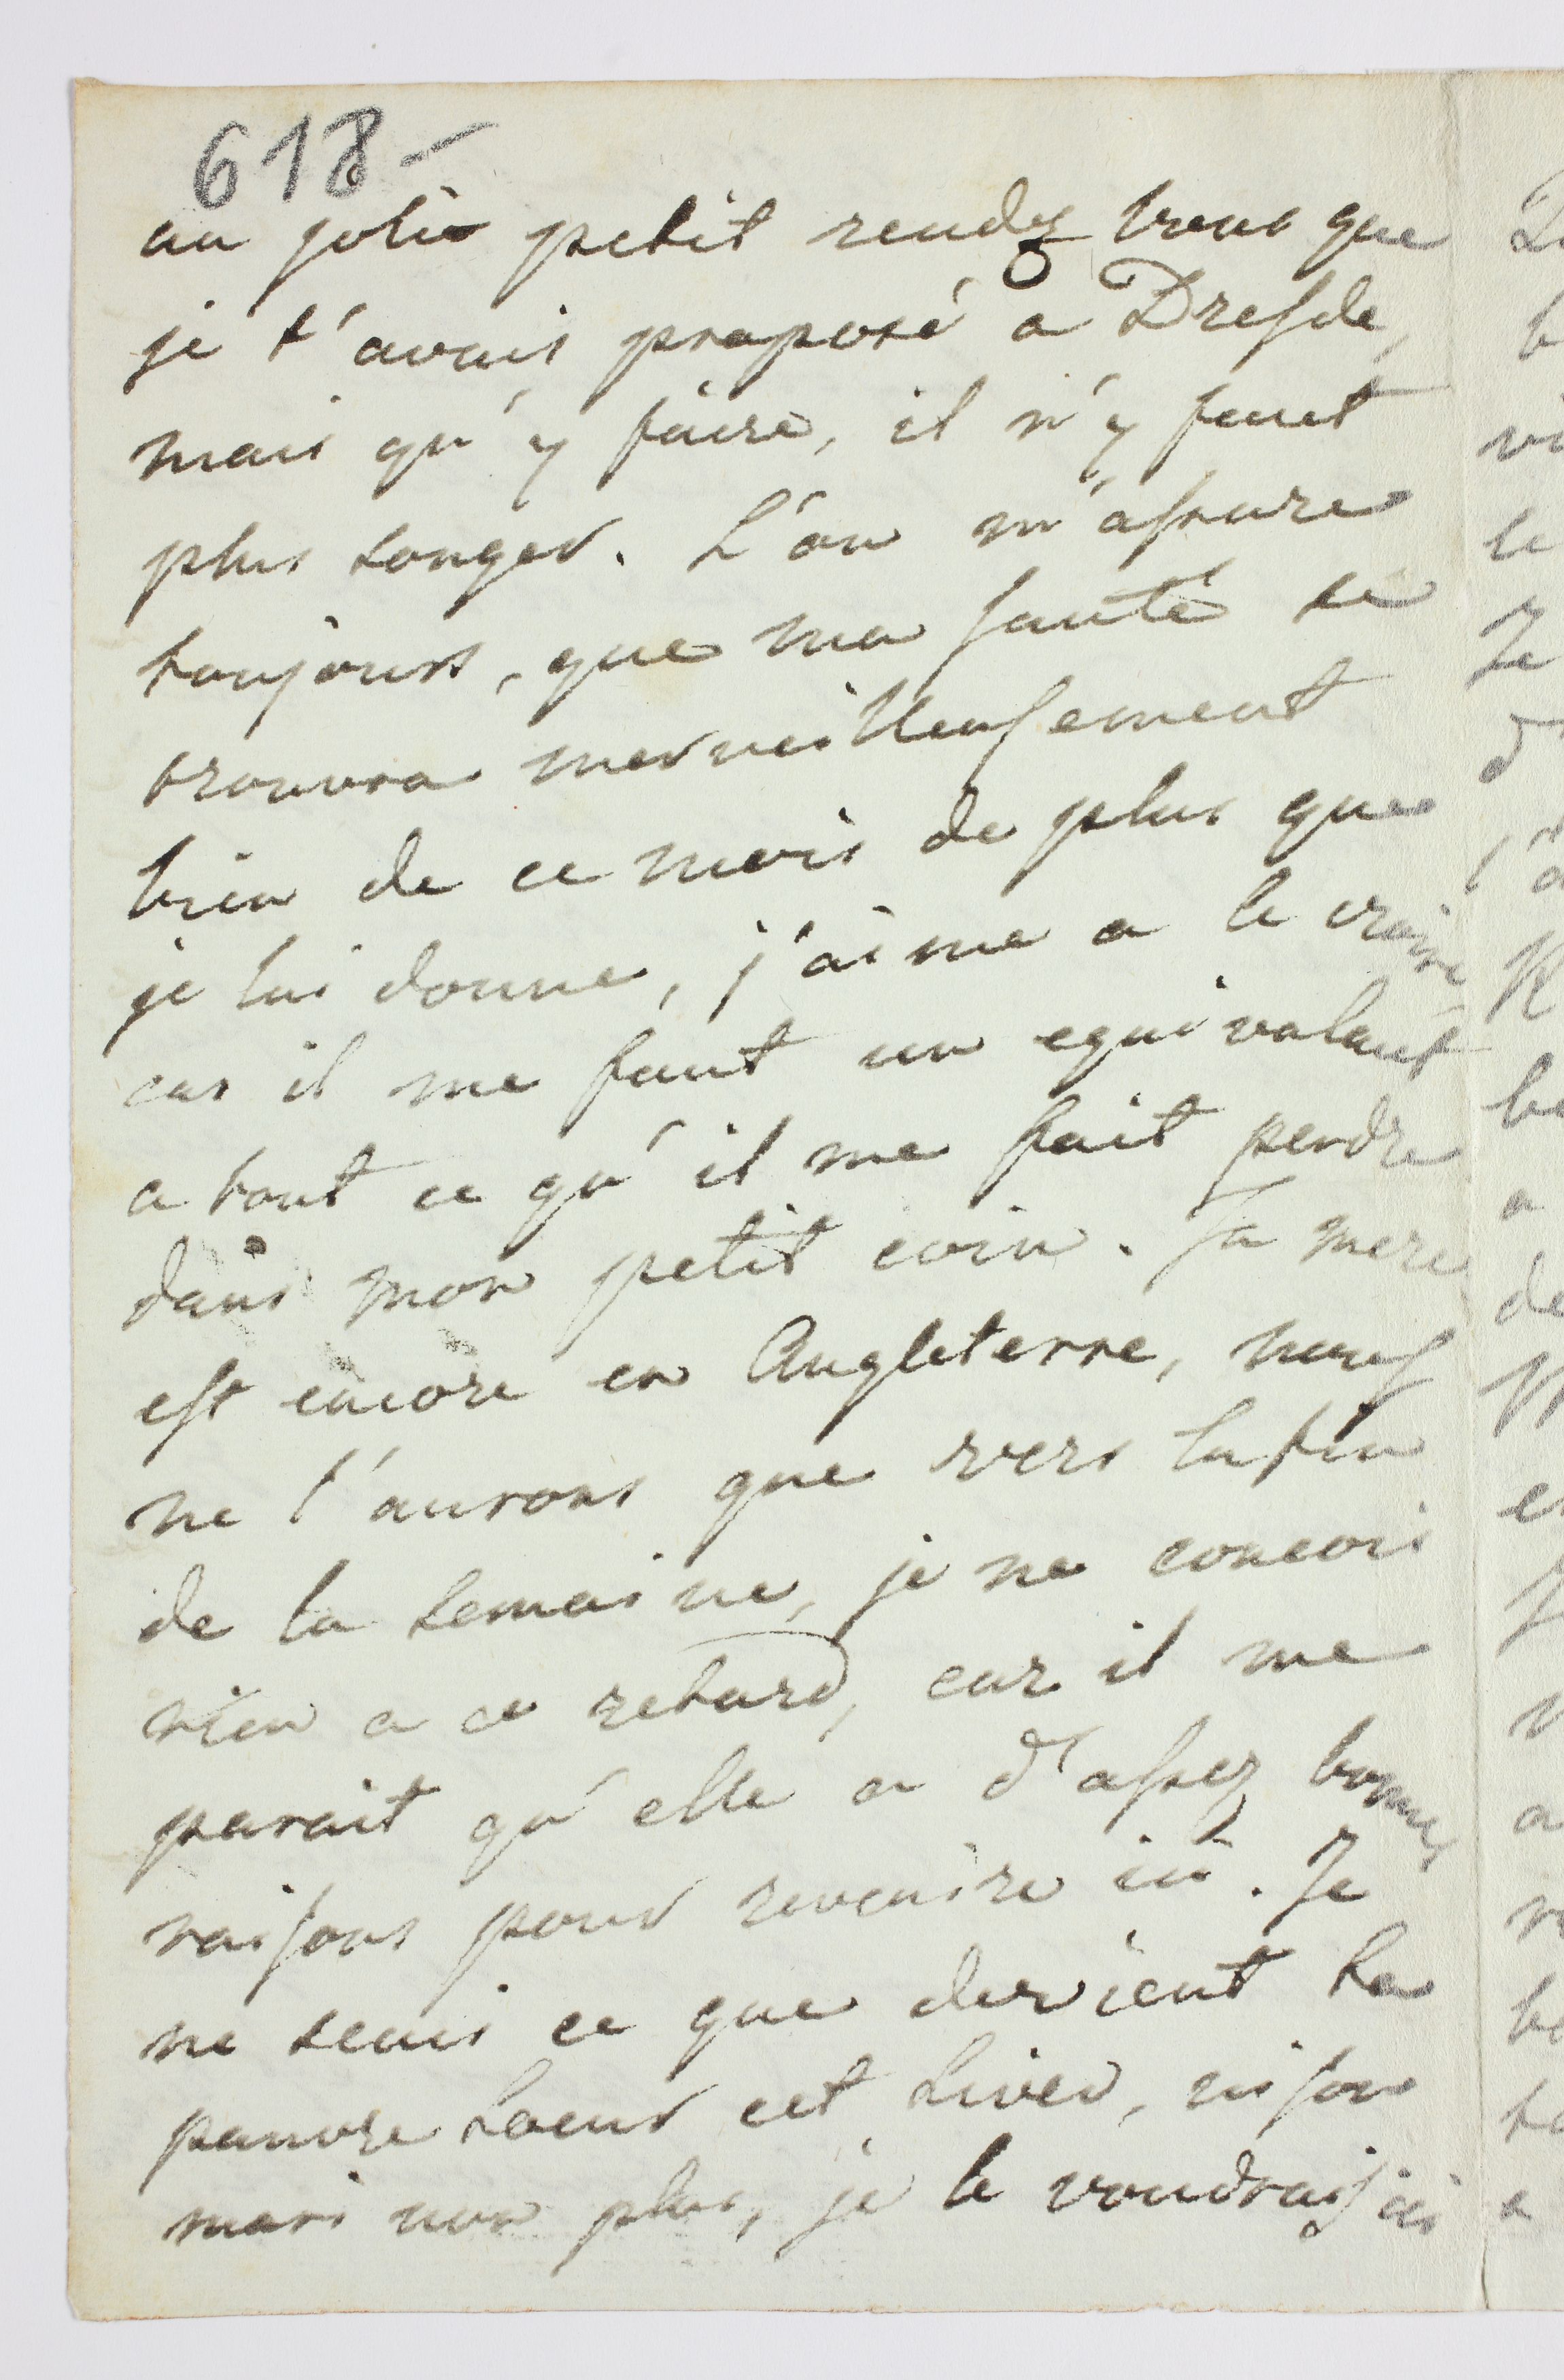 618-
au joli petit rendez vous que
je t'avais proposé a Dresde,
mais qu'y faire, il n'y faut
plus songer. L'on m'assure
toujours, que ma santé se
trouvra merveilleusement
bien de ce mois de plus que
je lui donne, j'aime a le croire
car il me faut un equivalant
a tout ce qu'il me fait perdre
dans mon petit coin. Ta mere
est encore en Angleterre, nous
ne l'aurons que vers la fin
de la semaine, je ne concois
rien a ce retard, car il me
parait qu'elle a d'assez bonnes
raisons pour revenire ici. Je
ne sais ce que devient ta
pauvre soeur cet hiver, ni son
mari non plus, je le voudrais ici